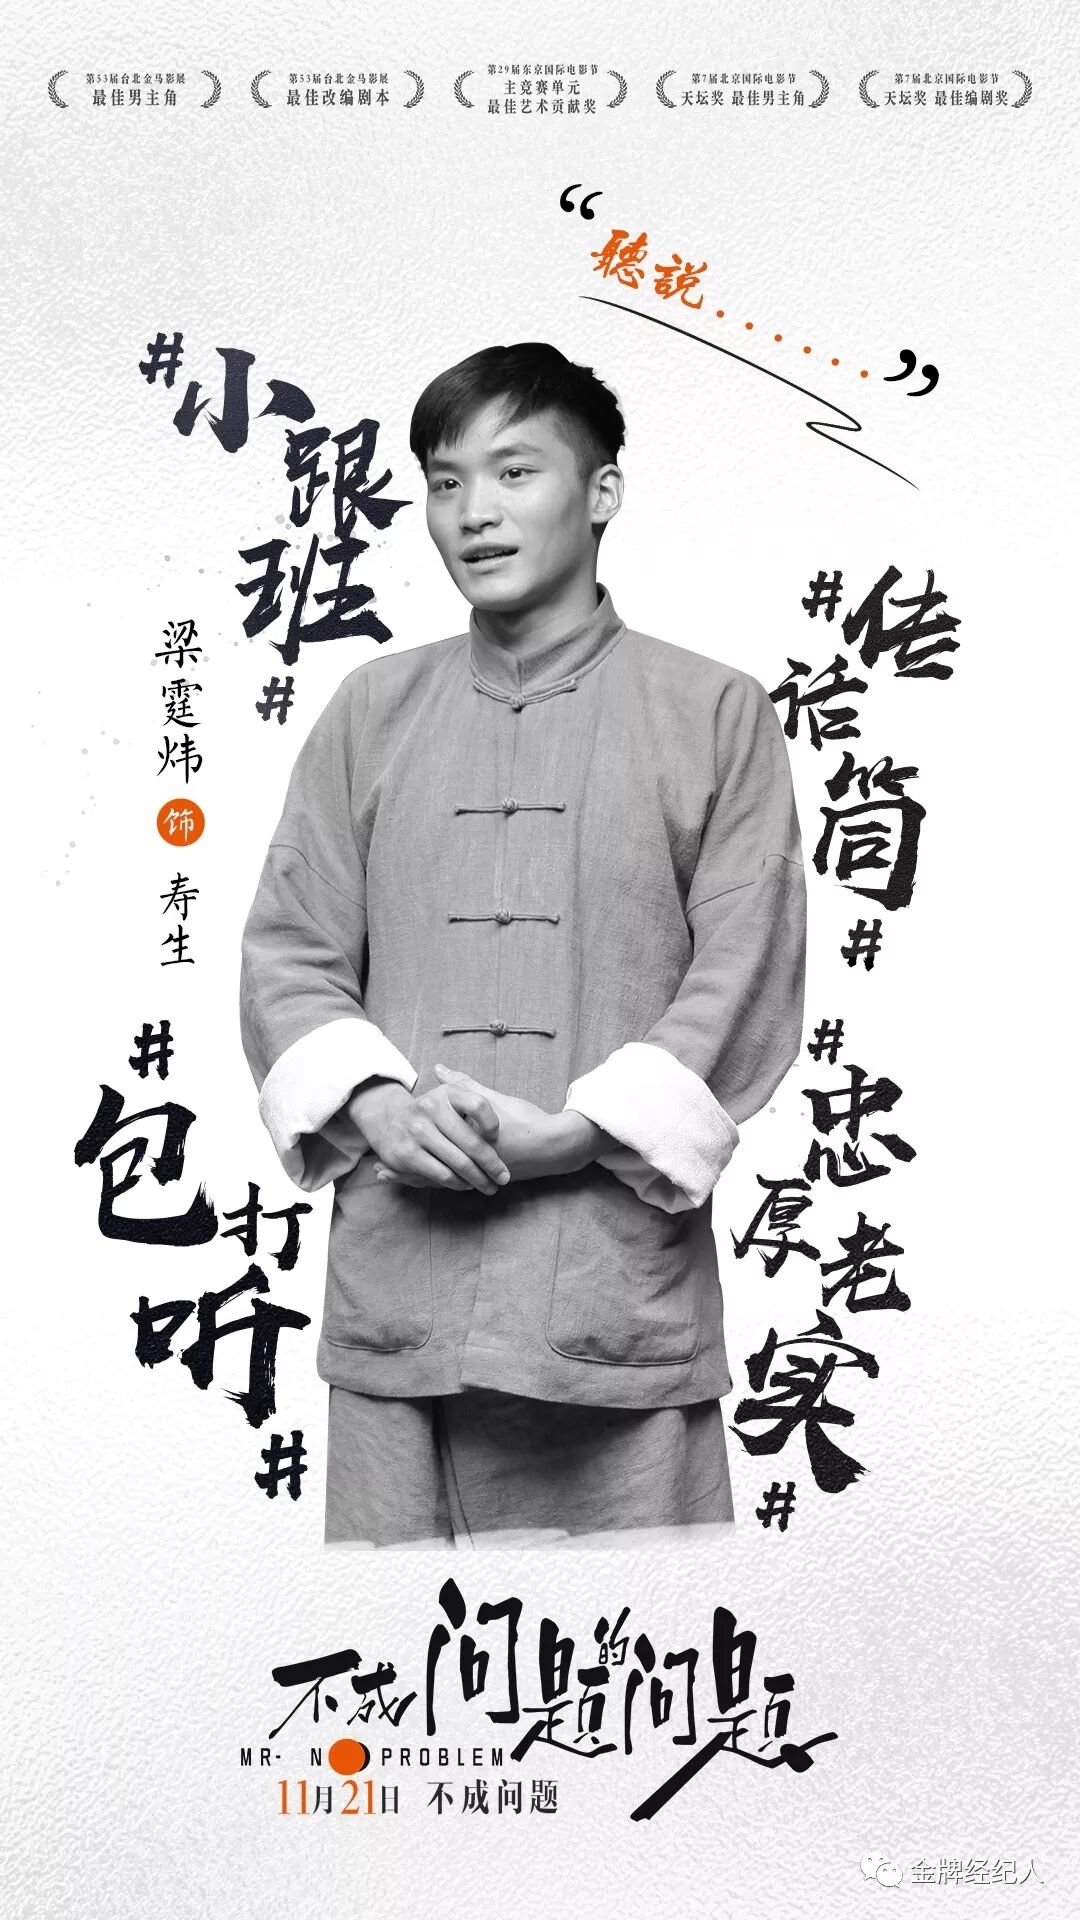 第53届台北金马影展
最佳男主角
第53届台北金马影展
最佳改编剧本
第29届东京国际电影节
主竞赛单元
最佳艺术贡献奖
第7届北京国际电影节
天坛奖 最佳男主角
第7届北京国际电影节
天坛奖 最佳编剧奖
“聽説......”
#小跟班#
梁霆炜 饰 寿生
#传话筒#
#包打听#
#忠厚老实#
不成问题的问题
MR. NO PROBLEM
11月21日 不成问题
金牌经纪人